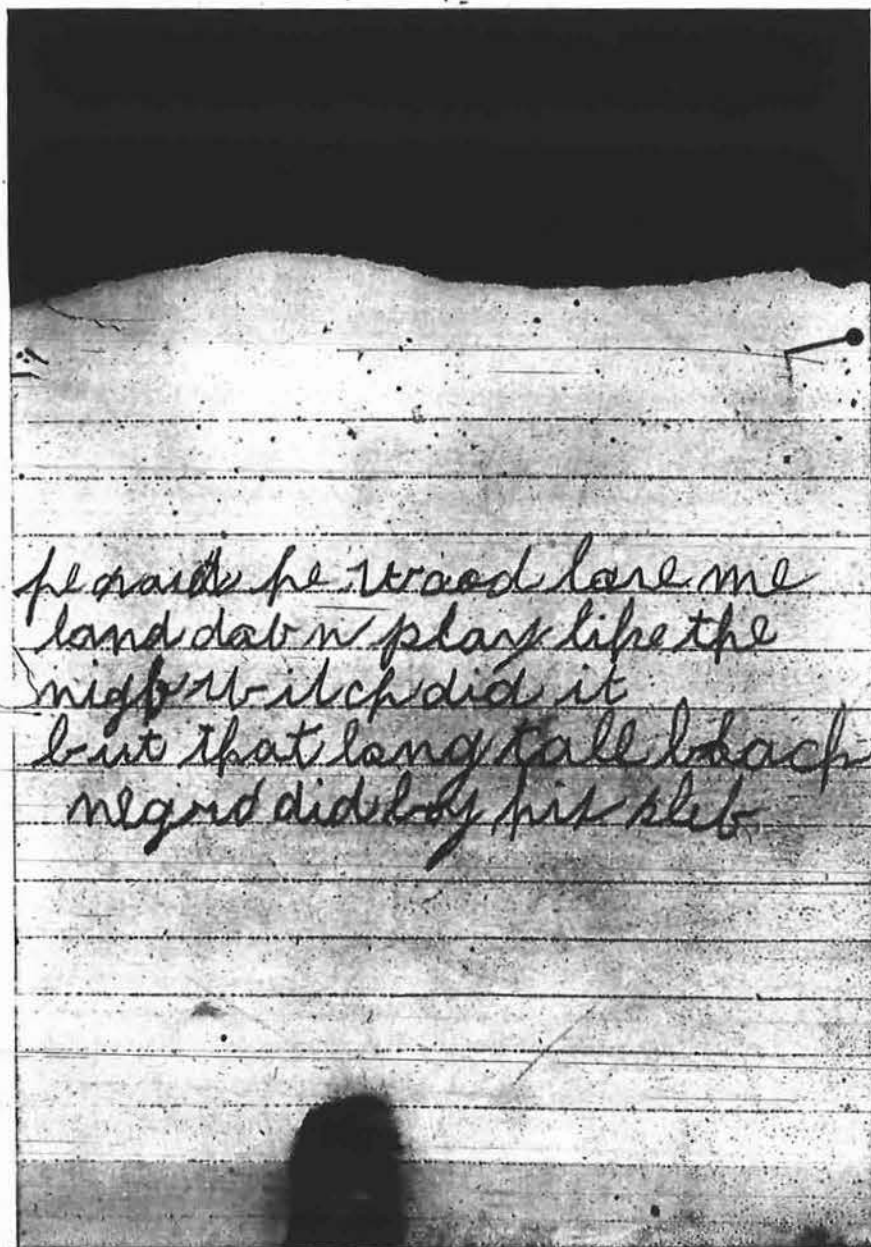 he said he wood love me
land down play like the
night witch did it
but that long tall black
negro did boy his slef